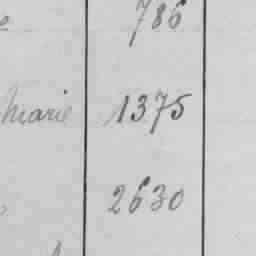 786
Marie 1375
2630